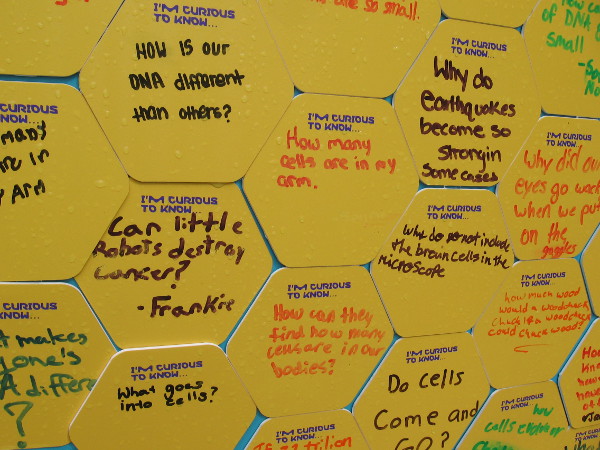 are so small.
I'M CURIOUS
TO KNOW...
HOW IS OUR
DNA different
than others?
I'M CURIOUS
TO KNOW...
Why do
earthquakes
become so
strongin
some cases
of DNA
small
CURIOUS
KNOW...
many
are in
Arm
I'M CURIOUS
TO KNOW...
How many
cells are in my
arm.
I'M CURIOUS
TO KNOW...
Why did our
eyes go
when we put
on the
goggles
I'M CURIOUS
TO KNOW...
Can little
Robots destroy
cancer?
-Frankie
I'M CURIOUS
TO KNOW...
Why do
not include
the brain cells in the
microscope
I'M CURIOUS
TO KNOW...
how much wood
would a woodchuck
chuck if a woodchuck
could chuck wood?
CURIOUS
KNOW...
makes
differ
?
I'M CURIOUS
TO KNOW...
How can they
find how many
cells are in our
bodies?
I'M CURIOUS
TO KNOW...
What goes
into cells?
I'M CURIOUS
TO KNOW...
Do cells
Come and
GO?
I'M CURIOUS
TO KNOW...
how
cells
I'M CURIOUS
TO KNOW...
trillion